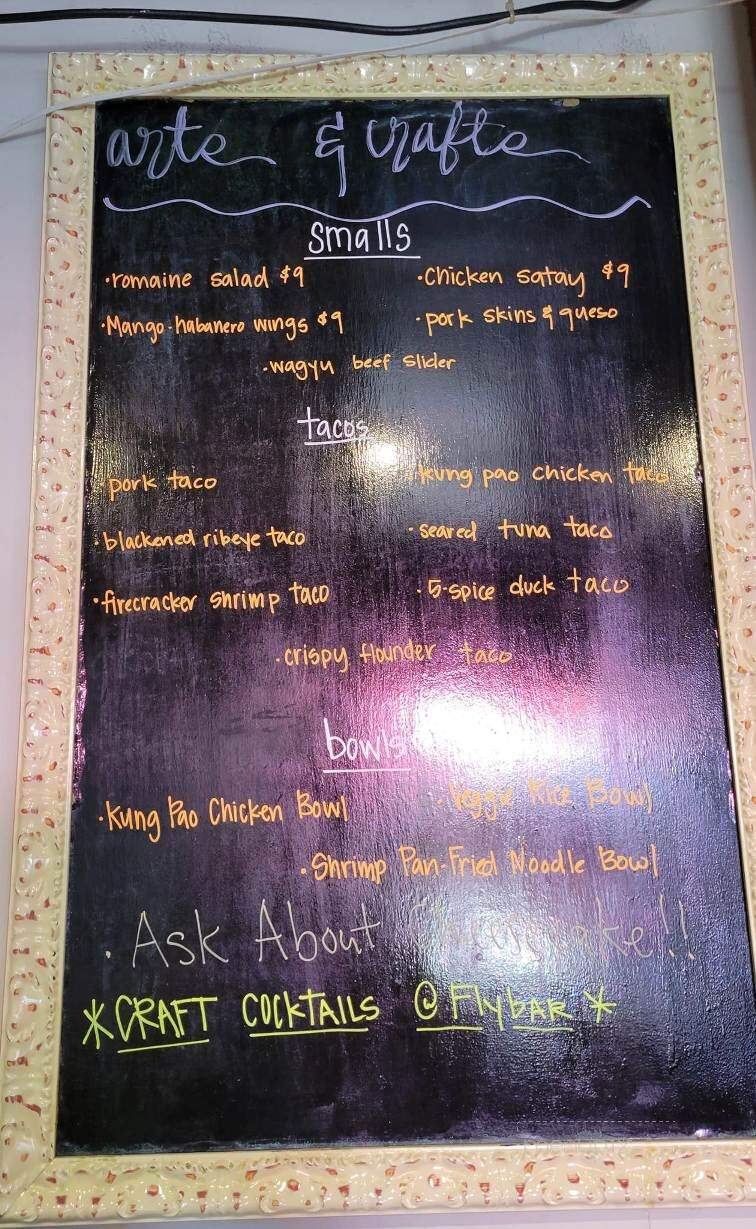 arts & crafts
Smalls
·romaine salad $9
·Chicken satay $9
·Mango-habanero wings $9
·pork skins & queso
·wagyu beef slider
tacos
pork taco
·kung pao chicken taco
·blackened ribeye taco
·seared tuna taco
·firecracker shrimp taco
·5-spice duck taco
·crispy flounder taco
bowls
·Kung Pao Chicken Bowl
·Veggie Rice Bowl
·Shrimp Pan-Fried Noodle Bowl
·Ask About Cheesecake!!
*CRAFT COCKTAILS @ FlyBAR*